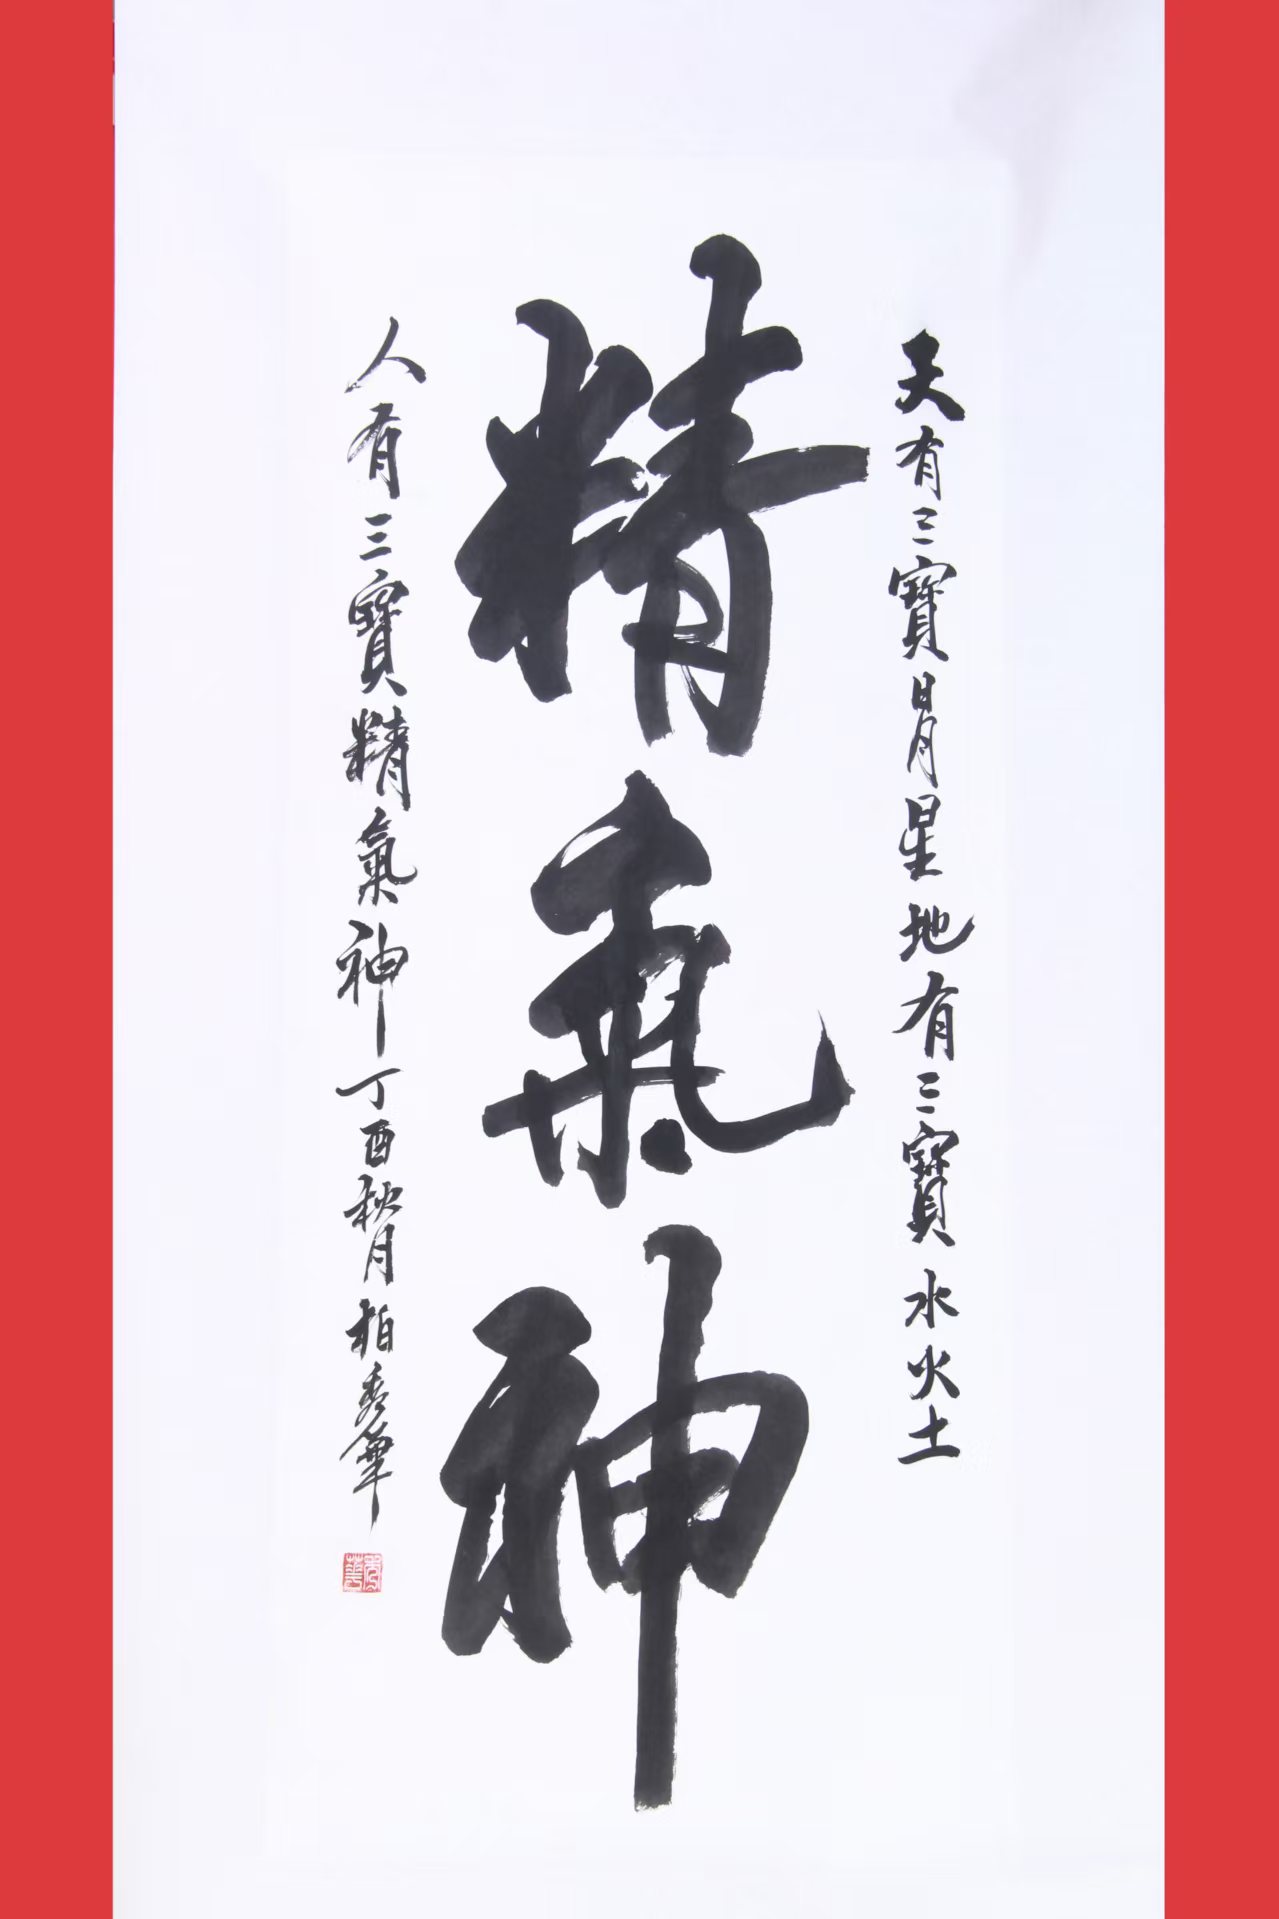 天有三寶日月星地有三寶水火土
精氣神
人有三寶精氣神丁酉秋月柏秀筆